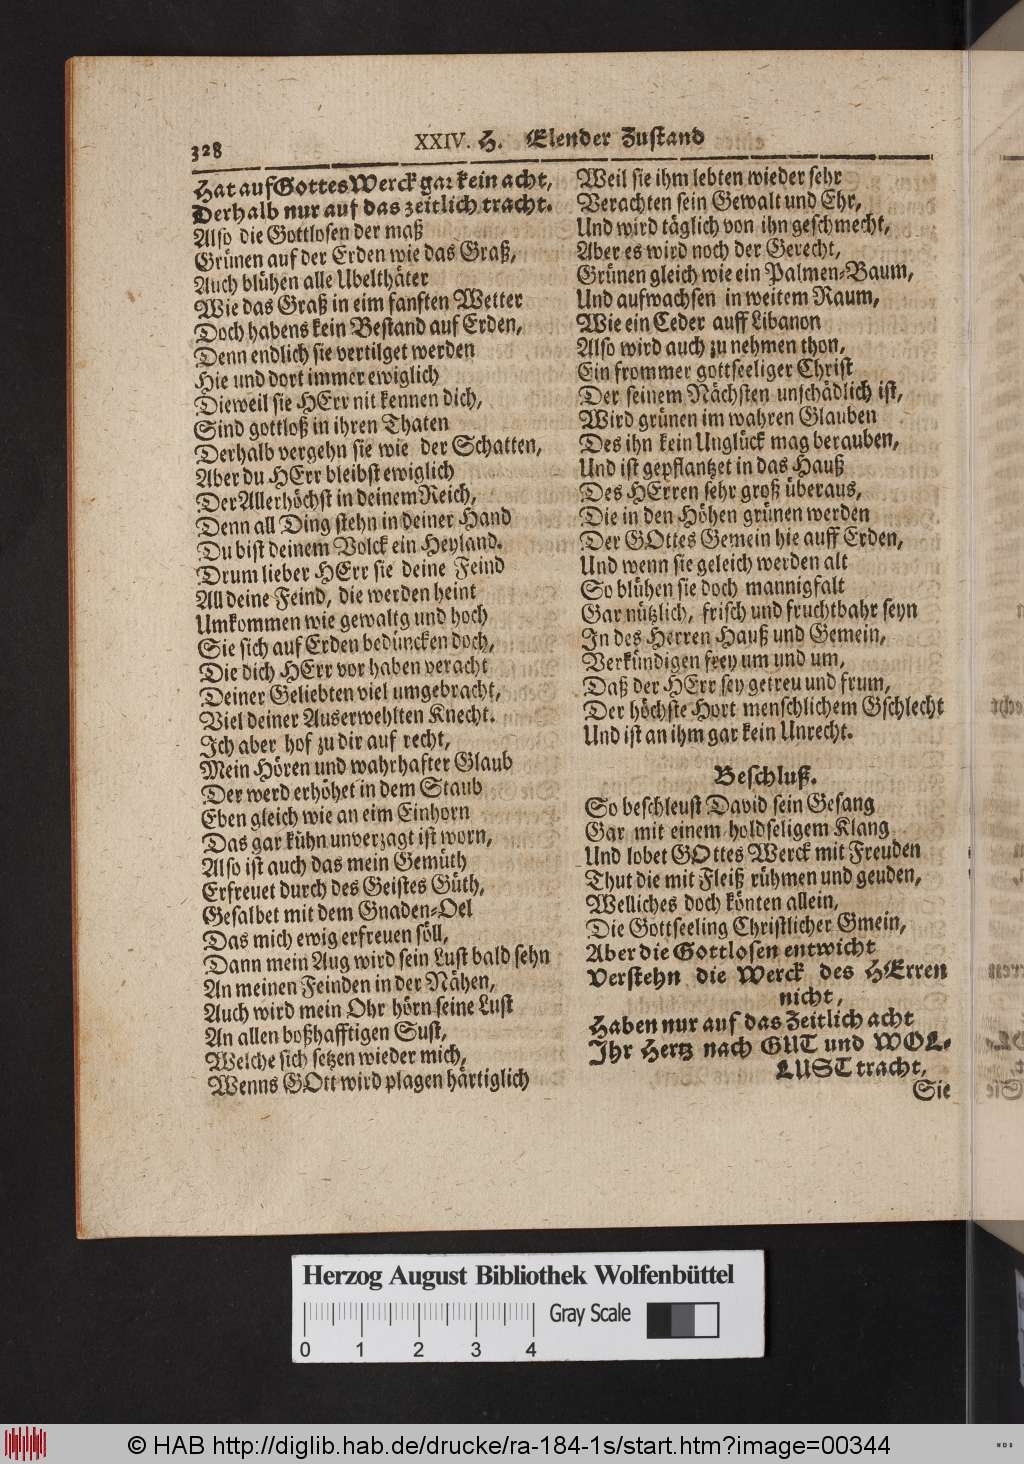 328
XXIV. H. Elender Zustand
Hat auf Gottes Werck gar kein acht,
Derhalb nur auf das zeitlich tracht.
Also die Gottlosen der maß
Grünen auf der Erden wie das Graß,
Auch blühen alle Ubelthäter
Wie das Graß in eim sanften Wetter
Doch habens kein Bestand auf Erden,
Denn endlich sie vertilget werden
Hie und dort immer ewiglich
Dieweil sie HErr nit kennen dich,
Sind gottloß in ihren Thaten
Derhalb vergehn sie wie der Schatten,
Aber du HErr bleibst ewiglich
Der Allerhöchst in deinem Reich,
Denn all Ding stehn in deiner Hand
Du bist deinem Volck ein Heyland.
Drum lieber HErr sie deine Feind
All deine Feind, die werden heint
Umkommen wie gewaltg und hoch
Sie sich auf Erden bedüncken doch,
Die dich HErr vor haben veracht
Deiner Geliebten viel umgebracht,
Viel deiner Auserwehlten Knecht.
Ich aber hof zu dir auf recht,
Mein Hören und wahrhafter Glaub
Der werd erhöhet in dem Staub
Eben gleich wie an eim Einhorn
Das gar kühn unverzagt ist worn,
Also ist auch das mein Gemüth
Erfreuet durch des Geistes Güth,
Gesalbet mit dem Gnaden-Oel
Das mich ewig erfreuen söll,
Dann mein Aug wird sein Lust bald sehn
An meinen Feinden in der Nähen,
Auch wird mein Ohr hörn seine Lust
An allen boßhafftigen Sust,
Welche sich setzen wieder mich,
Wenns GOtt wird plagen härtiglich
Weil sie ihm lebten wieder sehr
Verachten sein Gewalt und Ehr,
Und wird täglich von ihn geschmecht,
Aber es wird noch der Gerecht,
Grünen gleich wie ein Palmen-Baum,
Und aufwachsen in weitem Raum,
Wie ein Ceder auff Libanon
Also wird auch zu nehmen thon,
Ein frommer gottseeliger Christ
Der seinem Nächsten unschädlich ist,
Wird grünen im wahren Glauben
Des ihn kein Unglück mag berauben,
Und ist gepflantzet in das Hauß
Des HErren sehr groß überaus,
Die in den Höhen grünen werden
Der GOttes Gemein hie auff Erden,
Und wenn sie geleich werden alt
So blühen sie doch mannigfalt
Gar nützlich, frisch und fruchtbahr seyn
In des Herren Hauß und Gemein,
Verkündigen frey um und um,
Daß der HErr sey getreu und frum,
Der höchste Hort menschlichem Gschlecht
Und ist an ihm gar kein Unrecht.
Beschluß.
So beschleust David sein Gesang
Gar mit einem holdseligem Klang
Und lobet GOttes Werck mit Freuden
Thut die mit Fleiß rühmen und geuden,
Welliches doch könten allein,
Die Gottseeling Christlicher Gmein,
Aber die Gottlosen entwicht
Verstehn die Werck des HErren
nicht,
Haben nur auf das Zeitlich acht
Ihr Hertz nach GUT und WOL-
LUST tracht,
Sie
Herzog August Bibliothek Wolfenbüttel
Gray Scale
0 1 2 3 4
© HAB http://diglib.hab.de/drucke/ra-184-1s/start.htm?image=00344